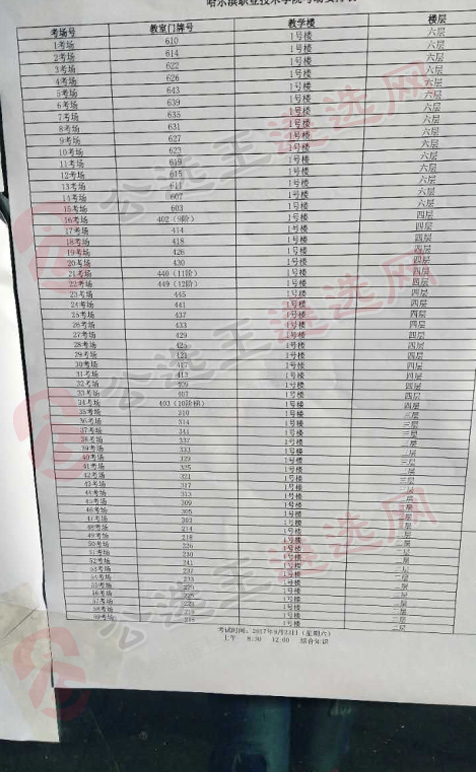 考场号 教室门牌号 教学楼 楼层
1考场 610 1号楼 六层
2考场 614 1号楼 六层
3考场 622 1号楼 六层
4考场 626 1号楼 六层
5考场 643 1号楼 六层
6考场 639 1号楼 六层
7考场 635 1号楼 六层
8考场 631 1号楼 六层
9考场 627 1号楼 六层
10考场 623 1号楼 六层
11考场 619 1号楼 六层
12考场 615 1号楼 六层
13考场 611 1号楼 六层
14考场 607 1号楼 六层
15考场 603 1号楼 六层
16考场 402（9阶） 1号楼 四层
17考场 414 1号楼 四层
18考场 418 1号楼 四层
19考场 426 1号楼 四层
20考场 430 1号楼 四层
21考场 440（11阶） 1号楼 四层
22考场 449（12阶） 1号楼 四层
23考场 445 1号楼 四层
24考场 441 1号楼 四层
25考场 437 1号楼 四层
26考场 433 1号楼 四层
27考场 429 1号楼 四层
28考场 425 1号楼 四层
29考场 421 1号楼 四层
30考场 417 1号楼 四层
31考场 413 1号楼 四层
32考场 409 1号楼 四层
33考场 407 1号楼 四层
34考场 403（10阶梯） 1号楼 四层
35考场 310 1号楼 三层
36考场 314 1号楼 三层
37考场 341 1号楼 三层
38考场 337 1号楼
39考场 333 1号楼
40考场 329 1号楼
41考场 325 1号楼
42考场 321 1号楼 三层
43考场 317 1号楼
44考场 313 1号楼
45考场 309 1号楼
46考场 305 1号楼
47考场 303 1号楼
48考场 214 1号楼
49考场 218 1号楼
50考场 226 1号楼 二层
51考场 230 1号楼 二层
52考场 241 1号楼 二层
53考场 237 1号楼 二层
54考场 233 1号楼 二层
考试时间：2017年9月23日（星期六）
上午 8:30 12:00 综合知识
公选王遴选网